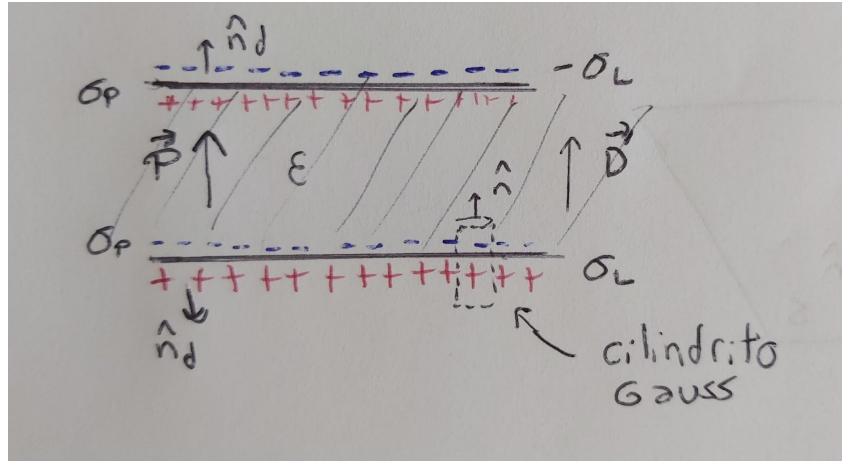 n̂d
σP - - - - - - - - - - - - -σL
+ + + + + + + + + + + + +
P⃗ ε n̂ D⃗
σP - - - - - - - - - - - -
+ + + + + + + + + + + + σL
n̂d
cilindrito
Gauss